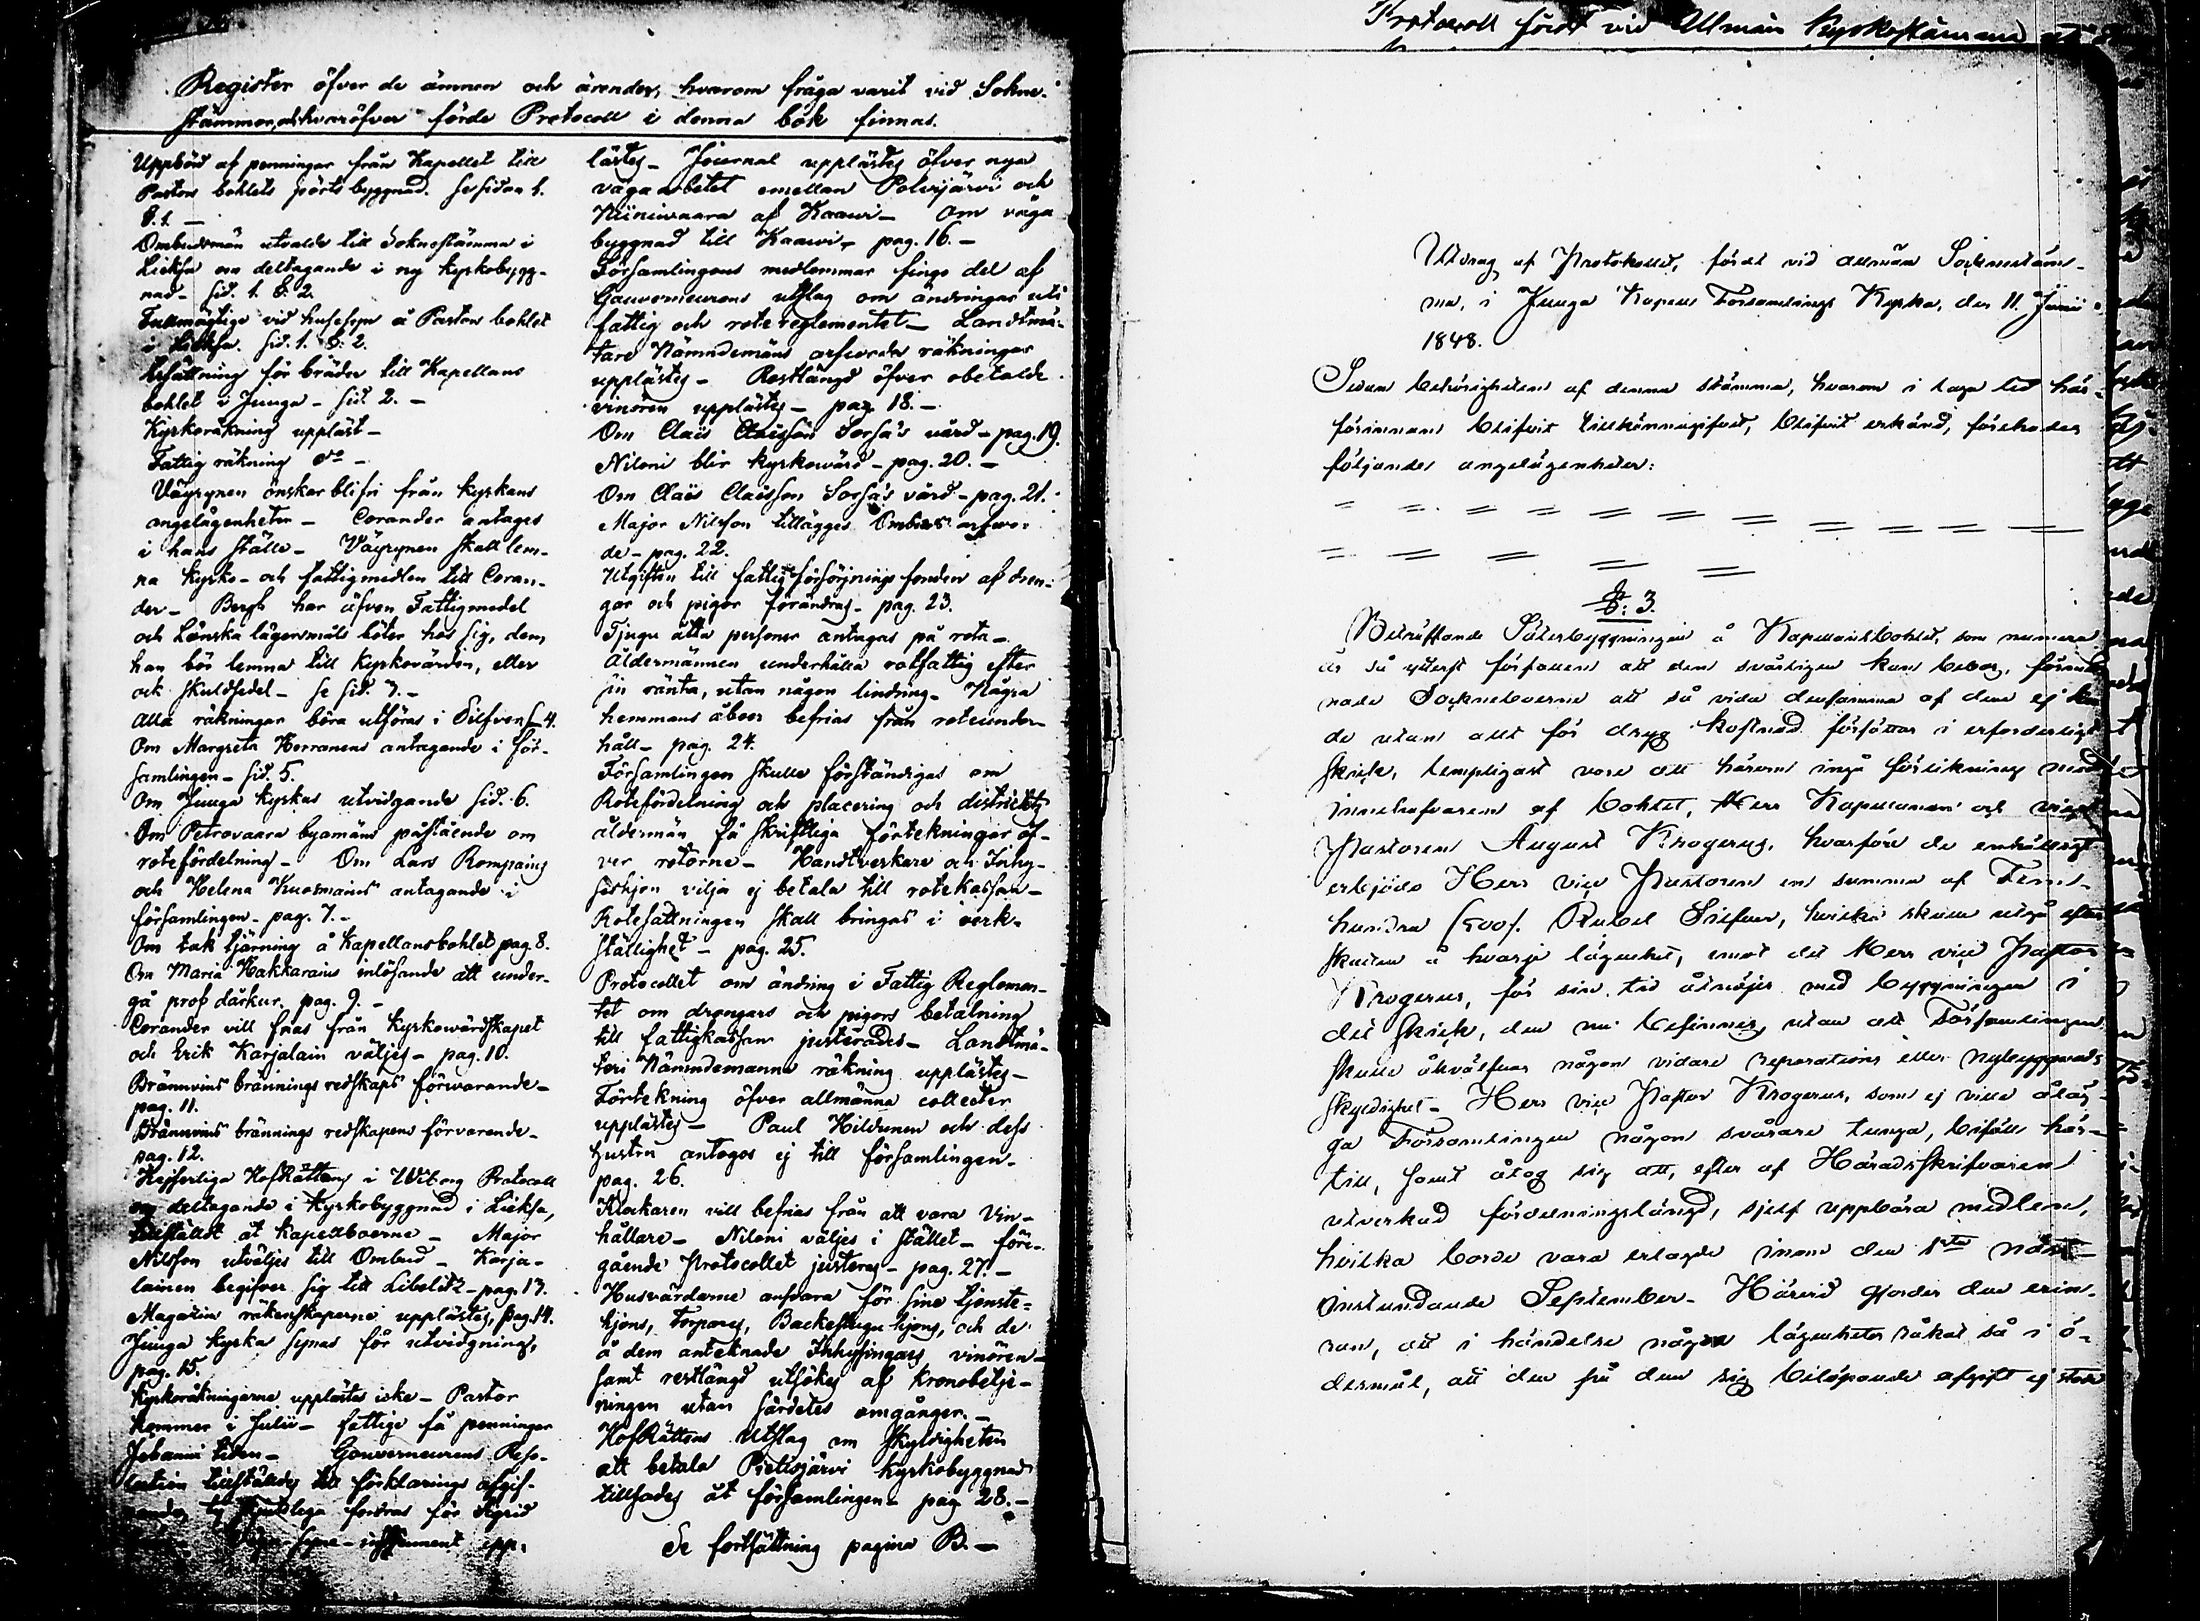 Register öfver de ämnen och ärender, hvarom fråga varit vid Sokne-
stämmor, och hvaröfver förde Protocoll i denna bok finnas.
Uppbörd af penningar från Kapellet till
Pastors bohlets pörts byggnad. se sidan 1.
§.1. —
Ombudsmän utvalde till Soknestämma i
Lieksa om deltagande i ny kyrkobygg-
nad - sid. 1. §. 2.
Fullmägtige vid husesyn å Pastors bohlet
i Lieksa. sid. 1. §. 2.
Ersättning för bräder till Kapellans
bohlet i Juuga - sid. 2. —
Kyrkoräkning uppläst —
Fattig räkning do —
Väyrynen önskar bli fri från kyrkans
angelägenheter — Corander antages
i hans ställe — Väyrynen skall lem-
na kyrko- och fattigmedlen till Coran-
der — Bergh har äfven Fattigmedel
och Lönska lägersmåls böter hos sig, dem
han bör lemna till Kyrkovärden, eller
ock skuldsedel — se sid. 3. —
Alla räkningar böra utföras i Silfver S. 4.
Om Margreta Korranens antagande i för-
samlingen — sid. 5.
Om Juuga kyrkas utvidgande sid. 6.
Om Petrovaara byamäns påstående om
rotefördelning — Om Lars Rompains
och Helena Kuosmains antagande i
församlingen — pag. 7. —
Om tak tjärning å Kapellansbohlet pag. 8.
Om Maria Hakkarains inlösande att under-
gå prof därkur. pag. 9. —
Corander vill frias från kyrkowärdskapet
och Erik Karjalain väljes — pag. 10.
Brännvins brännings redskaps förwarande —
pag. 11.
Brännvins brännings redskapens förvarende —
pag. 12.
Kejserliga HofRättens i Wiborg Protocoll
om deltagande i kyrkobyggnad i Lieksa,
tillstäldt åt kapellboerne — Major
Nilsson utväljes till Ombud — Karja-
lainen begifver sig till Libelitz — pag. 13.
Magazin räkenskaperne upplästes, pag. 14.
Juuga kyrka synas för utvidgning,
pag. 15.
Kyrkoräkningarne upplästes icke — Pastor
kommer i Julii — fattige få penningar
Johanni tiden — Gouverneurens Reso-
lution tillställdes till förklarings afgif-
fordras för
Syne-instrument upp-
lästes — Journal upplästes öfver nya
vägaarbetet emellan Polvijärvi och
Kiiniivaara af Kaawi — Om väga
byggnad till Kaawi — pag. 16. —
Församlingens medlemmar fingo del af
Gouverneurens utslag om ändringar uti
fattig och rote reglementet — Landtmä-
tare Nämndemäns arfwodes räkningar
upplästes — Restlängd öfver obetalde
vinören upplästes — pag. 18. —
Om Claës Claësson Sorsa's vård — pag. 19.
Niloni blir kyrkowärd — pag. 20. —
Om Claës Claësson Sorsa's vård — pag. 21.
Major Nilsson tillägges Ombuds arfwo-
de — pag. 22.
Utgiften till fattigförsörjnings fonden af drän-
gar och pigor förändras — pag. 23.
Tjugu åtta personer antagas på rota —
Åldermännen underhålla rotfattig efter
sin ränta, utan någon lindring — Några
hemmans åboer befrias från roteunder-
håll — pag. 24.
Församlingen skulle förständigas om
Rotefördelning och placering och districts
åldermän få skriftliga förtekningar öf-
ver rotorne — Handtverkare och Inhy-
seshjon vilja ej betala till rotekassan —
Rotesättningen skall bringas i verk-
ställighet — pag. 25.
Protocollet om ändring i Fattig Reglemen-
tet om drengars och pigors betalning
till fattigkassan justerades — Landtmä-
teri Nämndemanna räkning upplästes —
Förtekning öfver allmänna collecter
upplästes — Paul Hildunen och dess
hustru antogos ej till församlingen.
pag. 26.
Klockaren vill befrias från att vara Vin-
hållare — Niloni väljes i stället — före-
gående Protocollet justeras — pag. 27. —
Husvärdarne ansvara för sina tjenste-
hjons, torpares, Backestugu hjons, och de
å dem antecknade Inhysingars vinören —
samt restlängd utsökes af kronobetje-
ningen utan särdeles omgånger. —
HofRättens Utslag om skyldigheten
att betala Pielisjärvi kyrkobyggnad
tillsades åt församlingen — pag 28. —
Se fortsättning pagina B. —
Protocoll fördt vid Allmän Kyrkostämma
Utdrag af Protokollet, fördt vid allmän Sockenstäm-
ma, i Juuga Kapell Församlings Kyrka, den 11. Junii
1848.
Sedan behörigheten af denna stämma, hvarom i laga tid här-
förinnan blifvit tillkännagifvet, blifvit erkänd, förehades
följande angelägenheter:
§: 3.
Beträffande Säterbyggningen å Kapellansbohlet, som numera
är så ytterst förfallen att den svårligen kan bebos, förmen-
nade Sockneboerne att så vida densamma af dem ej kun-
de utan allt för dryg kostnad försättas i erforderligt
skick, lempligast vore att härom ingå förlikning med
innehafvaren af bohlet, Herr Kapellanen och vice
Pastoren August Krogerus, hvarföre de enhälligt
erbjödo Herr vice Pastoren en summa af Fem-
hundra (500). Rubel Silfver, hvilka skulle utgå efter
skatten å hvarje lägenhet, emot det Herr vice Pastor
Krogerus, för sin tid åtnöjes med byggningen i
det skick, den nu befinnes utan att Församlingen
skulle åhvälfvas någon vidare reparations eller nybyggnads
skyldighet — Herr vice Pastor Krogerus, som ej ville åläg-
ga Församlingen någon svårare tunga, biföll här-
till, samt åtog sig att, efter af Häradsskrifvaren
utverkad fördelningslängd, sjelf uppbära medlen,
hvilka borde vara erlagde innom den 1sta näst-
instundande September — Härvid gjordes den erin-
ran, att i händelse någon lägenhet råkat så i ö-
desmål, att den på den sig belöpande afgift ej